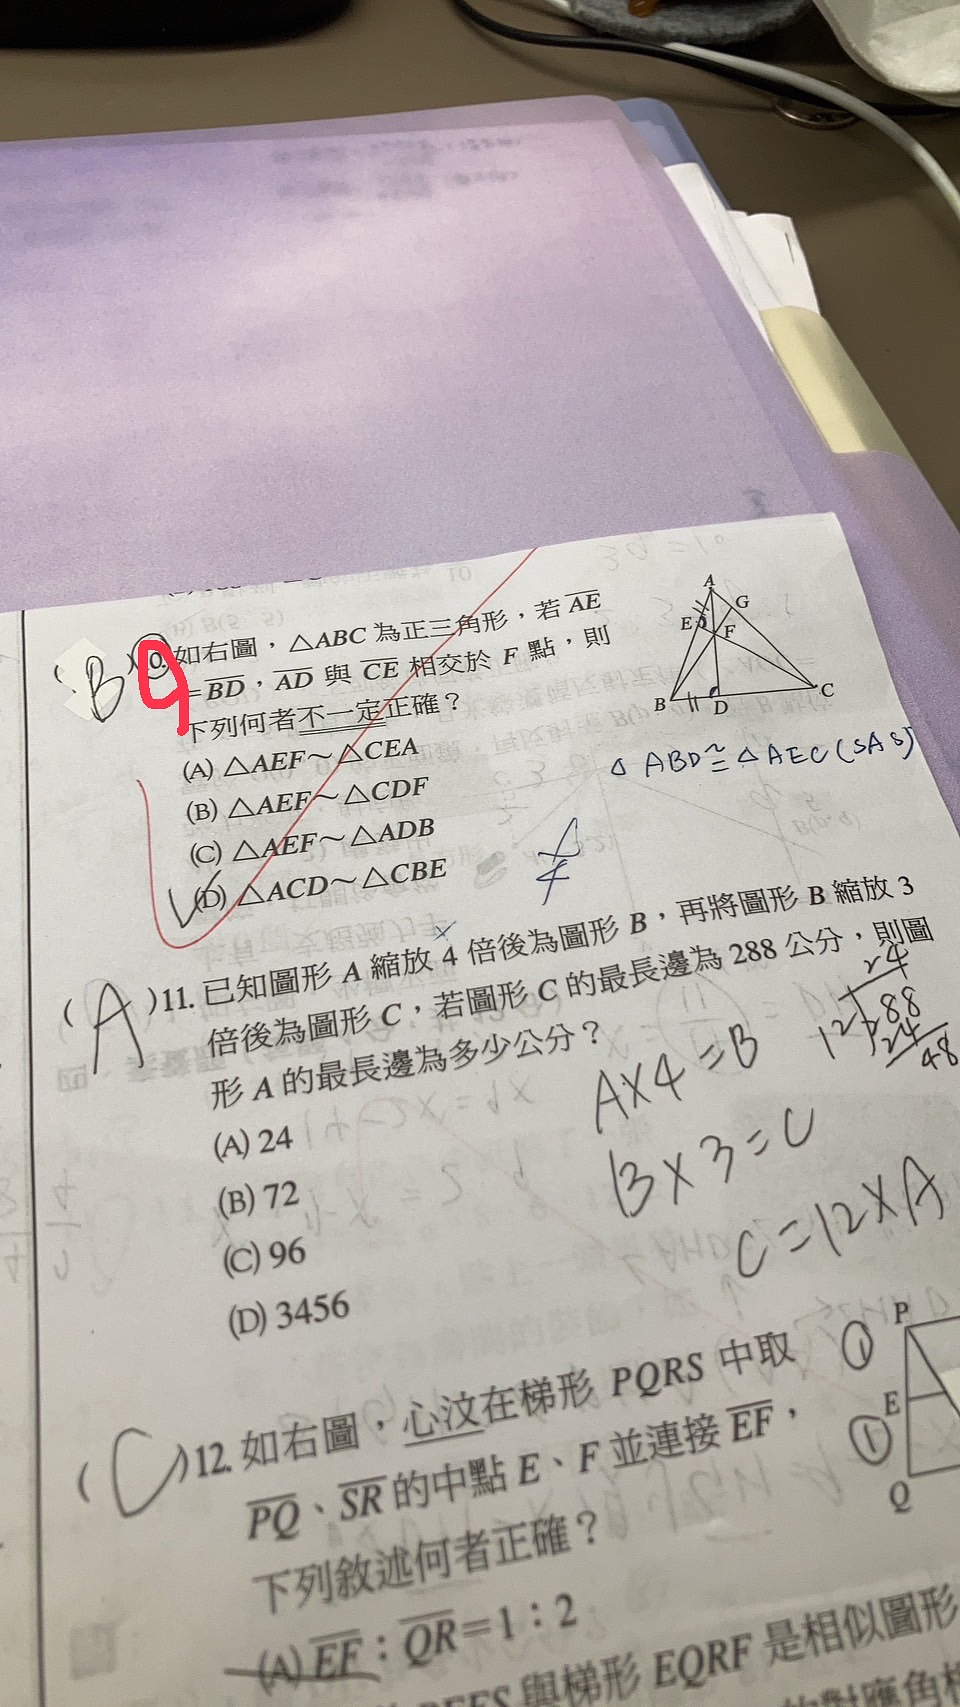 (B)
9
10. 如右圖，△ABC 為正三角形，若 AE
=BD，AD 與 CE 相交於 F 點，則
下列何者不一定正確？
(A) △AEF～△CEA
(B) △AEF～△CDF
(C) △AEF～△ADB
(D) △ACD～△CBE
A
G
E
F
B
D
C
△ABD≅△AEC(SAS)
(A)11. 已知圖形 A 縮放 4 倍後為圖形 B，再將圖形 B 縮放 3
倍後為圖形 C，若圖形 C 的最長邊為 288 公分，則圖
形 A 的最長邊為多少公分？
(A) 24
(B) 72
(C) 96
(D) 3456
24
12 288
24
48
A×4=B
B×3=C
C=12×A
(C)12. 如右圖，心汶在梯形 PQRS 中取
PQ、SR 的中點 E、F 並連接 EF，
下列敘述何者正確？
(A) EF：QR=1：2
與梯形 EQRF 是相似圖形
P
E
Q
1
1